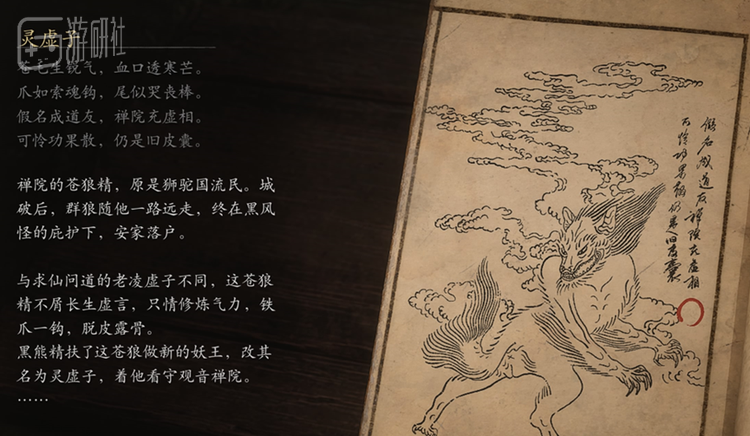 灵虚子
游研社
苍毛生锐气，血口透寒芒。
爪如索魂钩，尾似哭丧棒。
假名成道友，禅院充虚相。
可怜功果散，仍是旧皮囊。
禅院的苍狼精，原是狮驼国流民。城
破后，群狼随他一路远走，终在黑风
怪的庇护下，安家落户。
与求仙问道的老凌虚子不同，这苍狼
精不屑长生虚言，只情修炼气力，铁
爪一钩，脱皮露骨。
黑熊精扶了这苍狼做新的妖王，改其
名为灵虚子，着他看守观音禅院。
……
假名成道友禅院充虚相
可怜功果散仍是旧皮囊